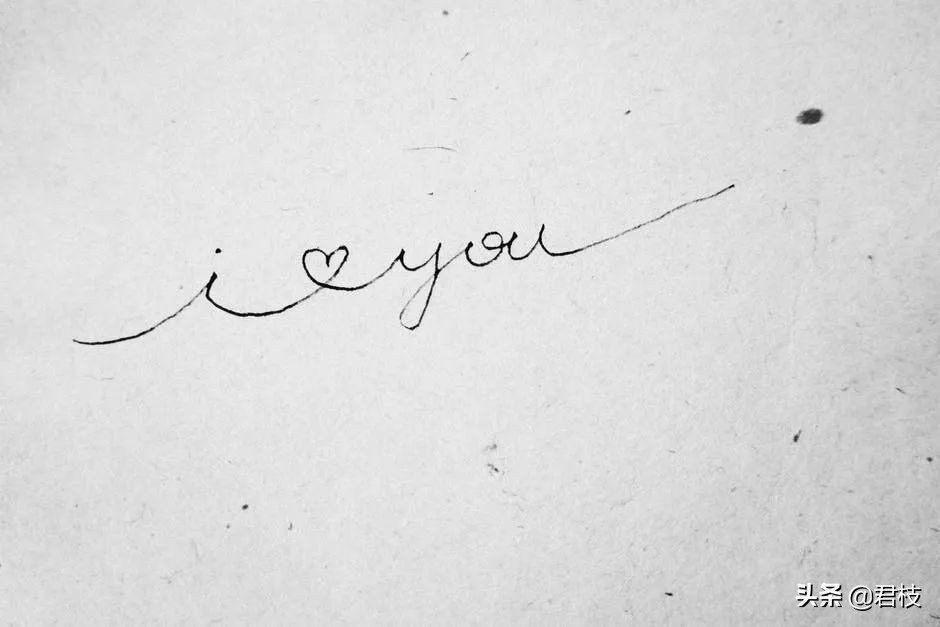 i ♡ you
头条 @君枝